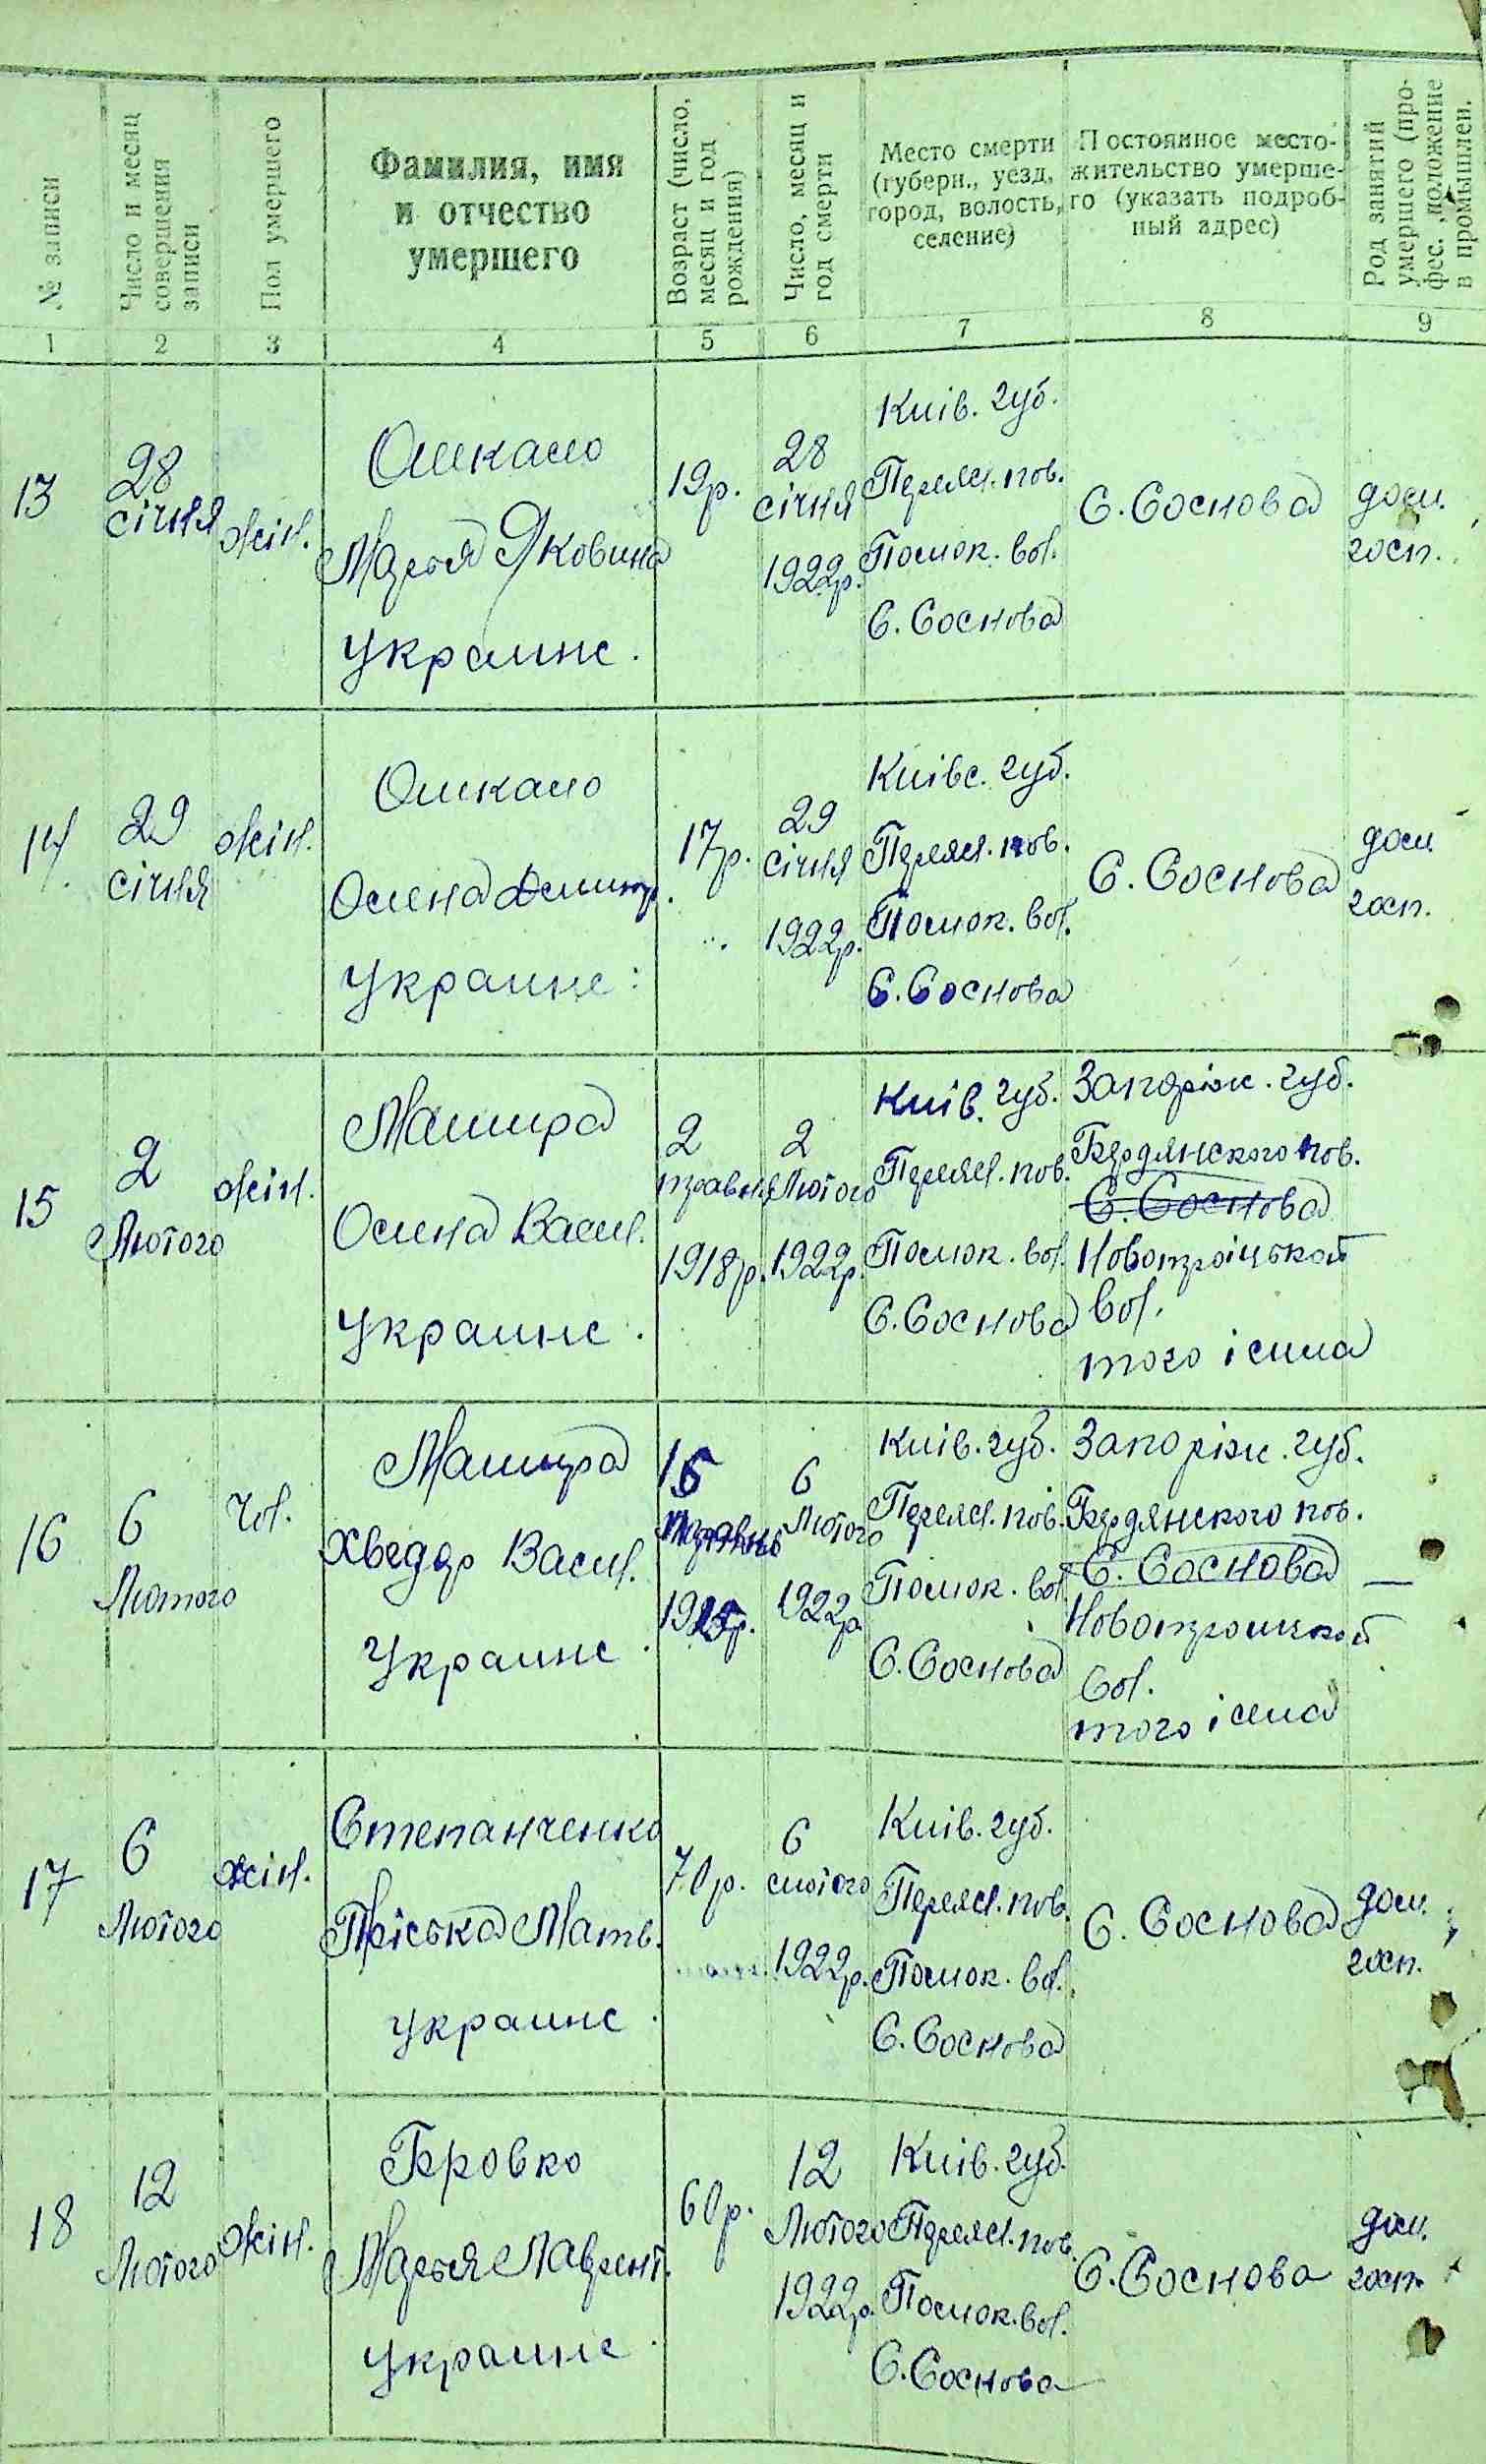 № записи
Число и месяц
совершения
записи
Пол умершего
Фамилия, имя
и отчество
умершего
Возраст (число,
месяц и год
рождения)
Число, месяц и
год смерти
Место смерти
(губерн., уезд,
город, волость,
селение)
Постоянное место-
жительство умерше-
го (указать подроб-
ный адрес)
Род занятий
умершего (про-
фес., положение
в промышлен.
1 2 3 4 5 6 7 8 9
13
28
січня
жін.
Ошкало
Марья Яковина
Украинс.
19р.
28
січня
1922р.
Київ. губ.
Переясл. пов.
Помок. вол.
С. Соснова
С. Соснова
дом.
госп.
14
29
січня
жін.
Ошкало
Олена Демит.
Украине:
17р.
29
січня
1922р.
Київс. губ.
Переясл. пов.
Помок. вол.
С. Соснова
С. Соснова
дом.
госп.
15
2
Лютого
жін.
Машира
Олена Васил.
Украинс.
2
травня
1918р.
2
Лютого
1922р.
Київ. губ.
Переясл. пов.
Помок. вол.
С. Соснова
Запоріж. губ.
Бердянского пов.
С. Соснова
Новотроіцькой
вол.
того і села
16
6
Лютого
Чол.
Машира
Хведор Васил.
Украинс.
6
Лютого
1922р.
Київ. губ.
Переясл. пов.
Помок. вол.
С. Соснова
Запоріж. губ.
Бердянского пов.
С. Соснова
Новотроицкой
вол.
того і села
—
17
6
Лютого
жін.
Степанченко
Пріська Матв.
украинс.
70р.
6
лютого
1922р.
Київ. губ.
Переясл. пов.
Помок. вол.
С. Соснова
С. Соснова
дом.
госп.
18
12
Лютого
жін.
Бровко
Марья Лаврент.
украинс.
60р.
12
Лютого
1922р.
Київ. губ.
Переясл. пов.
Помок. вол.
С. Соснова
С. Соснова
дом.
госп.